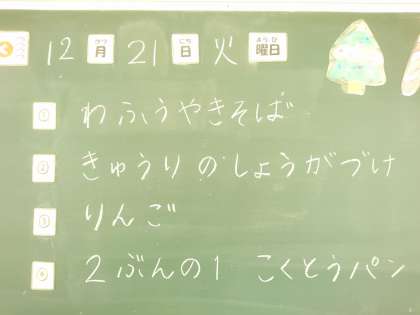 12月21日火曜日
① わふうやきそば
② きゅうりのしょうがづけ
③ りんご
④ 2ぶんの1 こくとうパン